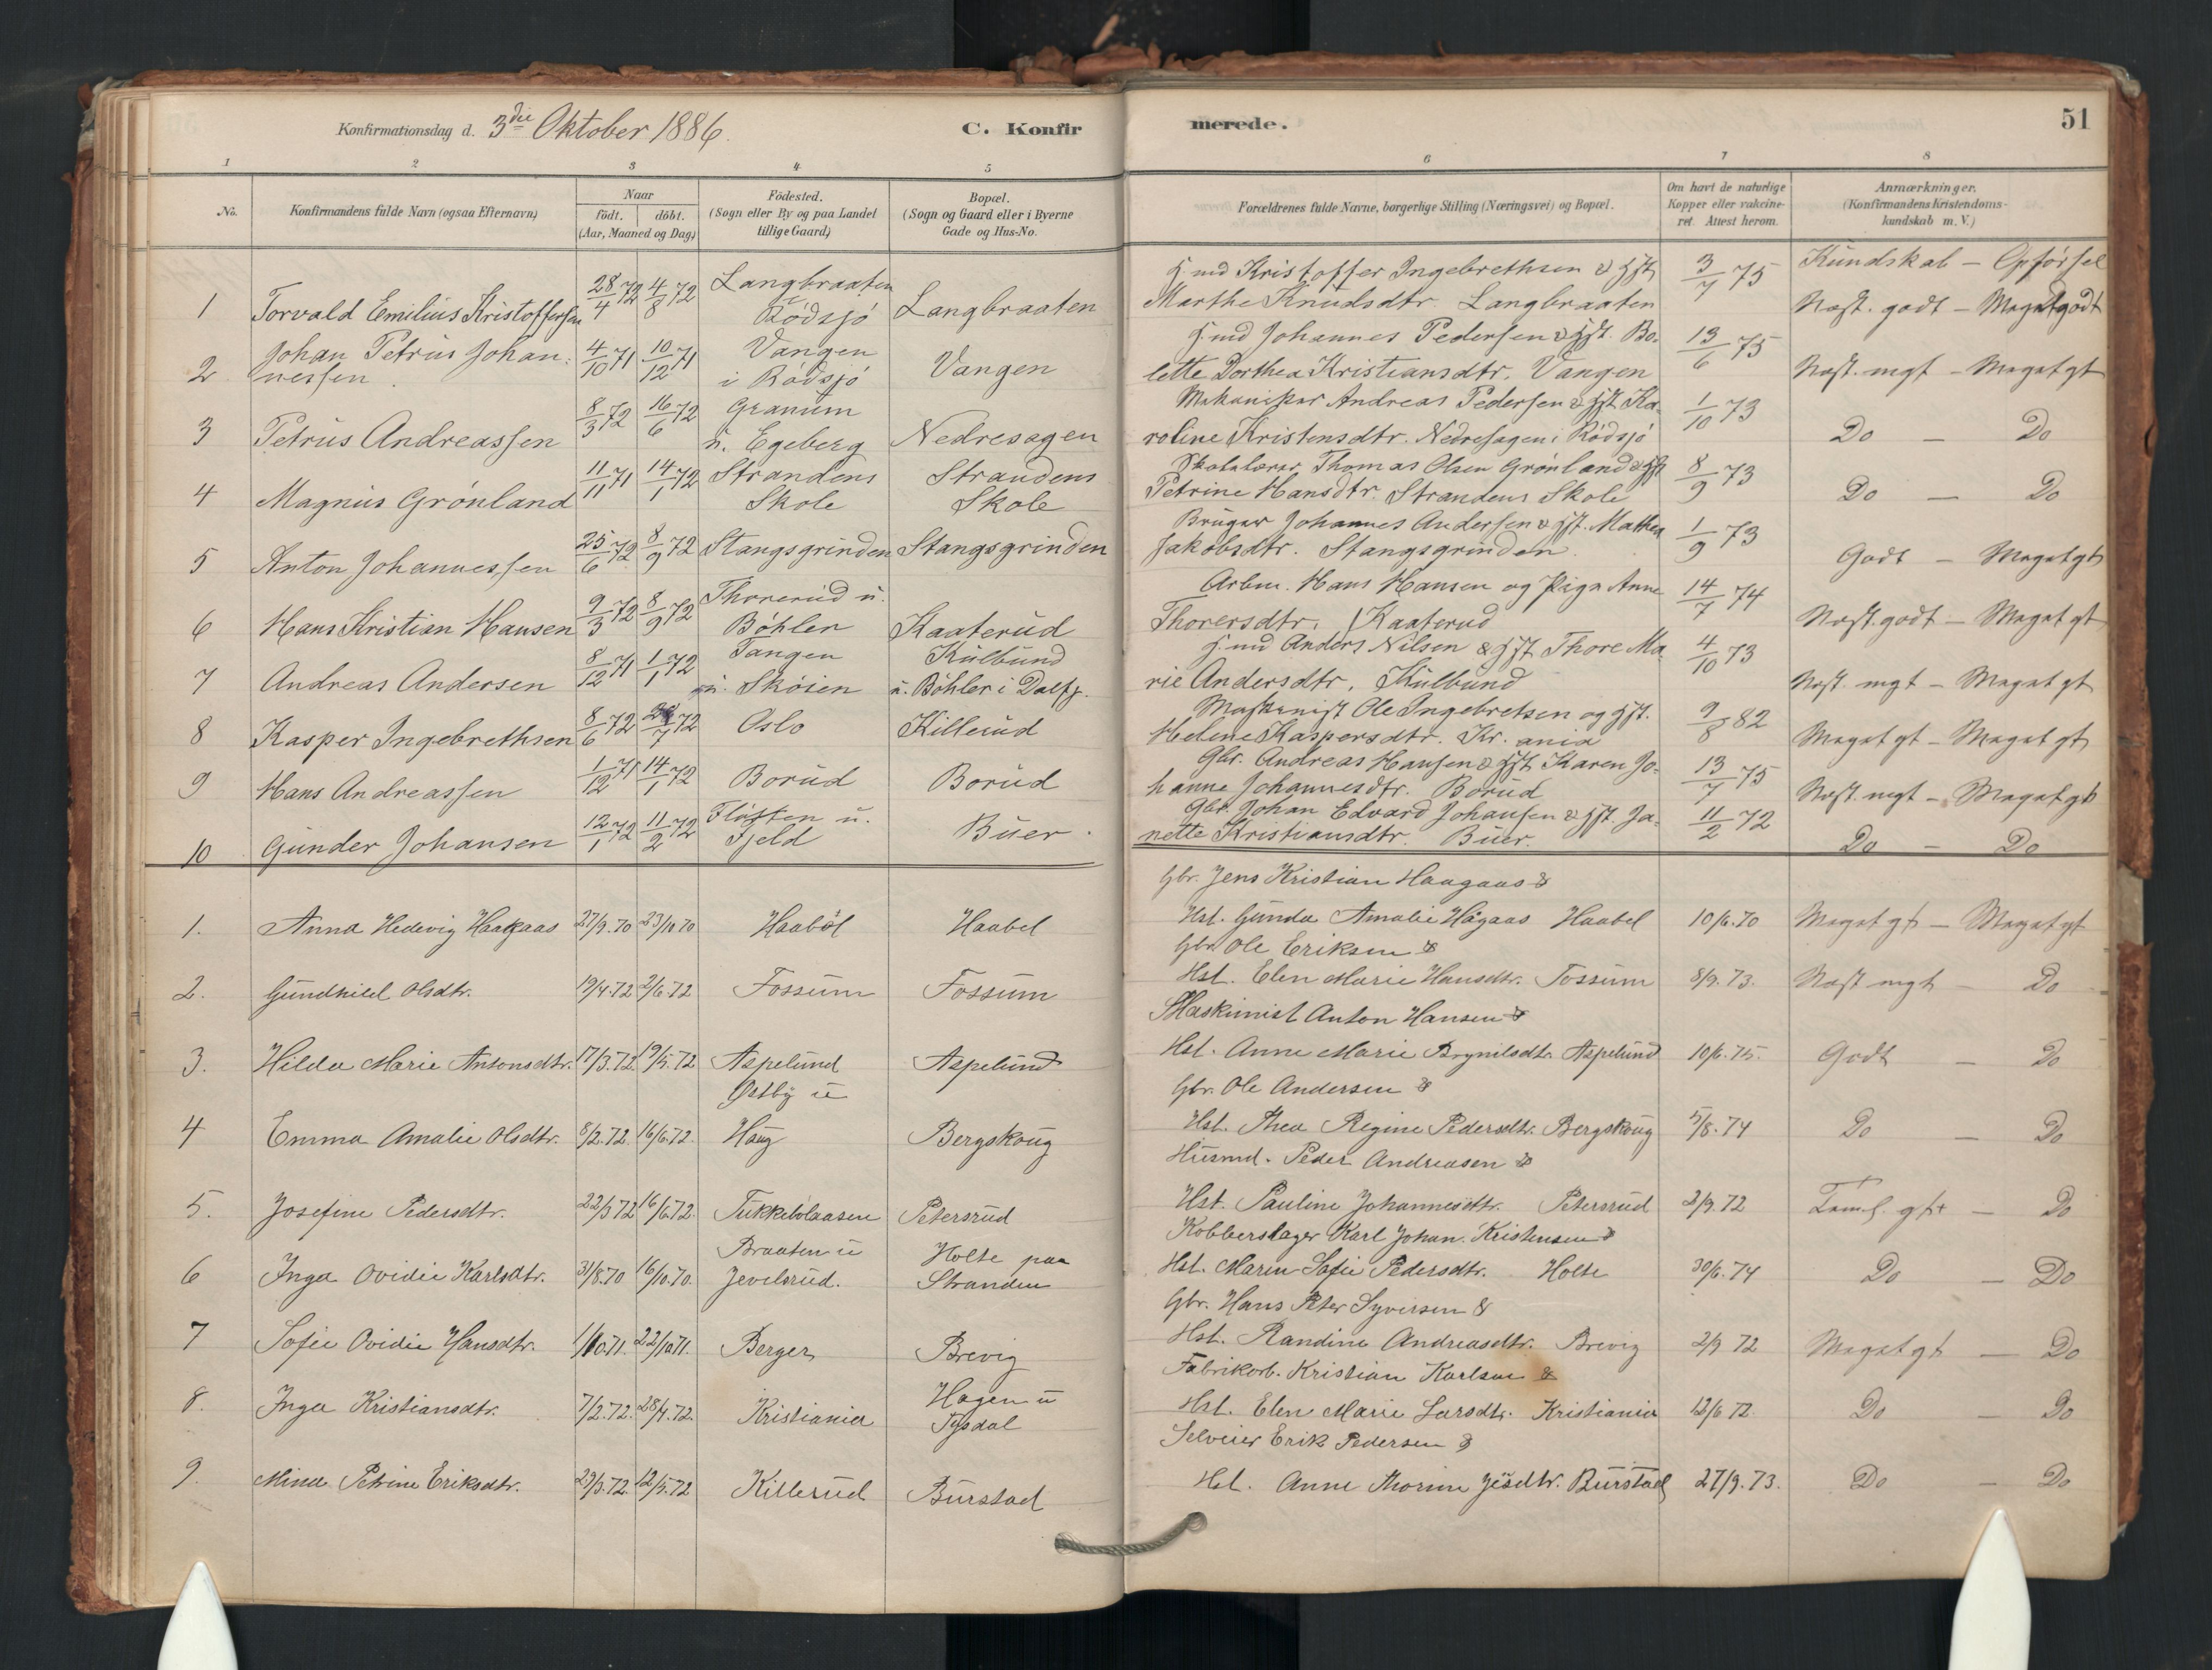 Konfirmationsdag d. 3die Oktober 1886. C. Konfir merede. 51
1 2 3 4 5 6 7 8
No.
Konfirmandens fulde Navn (ogsaa Efternavn)
Naar
födt. döbt.
(Aar, Maaned og Dag)
Födested.
(Sogn eller By og paa Landet
tillige Gaard)
Bopæl.
(Sogn og Gaard eller i Byerne
Gade og Hus-No.
Forældrenes fulde Navne, borgerlige Stilling (Næringsvei) og Bopæl.
Om havt de naturlige
Kopper eller vakcine-
ret Attest herom.
Anmærkninger.
(Konfirmandens Kristendoms-
kundskab m. V.)
Kundskab – Opførsel
Langbraaten J. md Kristoffer Ingebrethsen & Hst
1 Torvald Emilius Kristoffersen 28/4 72 4/8 72 Rödsjö Langbraaten Marthe Knudsdtr. Langbraaten 3/7 75 Næst. godt – Meget godt
Johan Petrus Johan- Vangen J. md Johannes Pedersen & Hst. Bo-
2 nessen. 4/10 71 10/12 71 i Rödsjö Vangen lette Dorthea Kristiansdtr. Vangen 13/6 75 Næst. mgt – Meget gt
Granum Andreas Pedersen & Hst Ka-
3 Petrus Andreassen 8/3 72 16/6 72 u. Egeberg Nedresagen roline Kristensdtr. Nedresagen i Rödsjö 1/10 73 Do – Do
Strandens Strandens Skolelærer Thomas Olsen Grönland & Hst
4 Magnus Grönland 11/11 71 14/1 72 Skole Skole Petrine Hansdtr. Strandens Skole 8/9 73 Do – Do
Bruger Johannes Andersen & Hst. Mathea
5 Anton Johannessen 25/6 72 8/9 72 Stangsgrinden Stangsgrinden Jakobsdtr. Stangsgrinden. 1/9 73 Godt – Meget gt
Thorerud u. Arbm. Hans Hansen og Pige Anne
6 Hans Kristian Hansen 9/3 72 8/9 72 Böhler Kaaterud Thorersdtr. Kaaterud 14/7 74 Næst. godt – Meget gt
Tangen Kulbund J. md Anders Nilsen & Hst Thore Ma-
7 Andreas Andersen 8/12 71 1/1 72 u. Sköien u. Böhler i Dalsj. rie Andersdtr. Kulbund 4/10 73 Næst. mgt – Meget gt
Maskinist Ole Ingebretsen og Hst.
8 Kasper Ingebrethsen 8/6 72 /7 72 Oslo Killerud Helene Kaspersdtr. Kr.ania 9/8 82 Meget gt – Meget gt
Gbr. Andreas Hansen & Hst Karen Jo-
9 Hans Andreassen 1/12 71 14/1 72 Borud Borud hanne Johannesdtr. Borud 13/7 75 Næst. mgt – Meget gt
Flöften u. Gbr. Johan Edvard Johansen & Hst. Ja-
10 Gunder Johansen 12/1 72 11/2 72 Fjeld Buer. nette Kristiansdtr. Buer. 11/2 72 Do – Do
Gbr. Jens Kristian Haagaas &
1. Anna Hedevig Haagaas 27/9.70 23/10 70 Haaböl Haabel Hst. Gunda Amalie Hågaas Haabel 10/6.70 Meget gt – Meget gt
Gbr. Ole Eriksen &
2. Gundhild Olsdtr. 19/4.72 2/6.72 Fossum Fossum Hst. Elen Marie Hansdtr. Fossum 8/9.73. Næst mgt – Do
Maskinist Anton Hansen &
3. Hilda Marie Antonsdtr. 17/3.72. 19/5.72 Aspelund Aspelund Hst. Anne Marie Brynilsdtr. Aspelund 10/6.75. Godt – Do
Østby u Gbr. Ole Andersen &
4 Emma Amalie Olsdtr. 8/2.72. 16/6.72. Haug Bergskoug Hst. Thea Regine Pedersdtr. Bergskoug 5/8.74 Do – Do
Husmd. Peder Andreasen &
5. Josefine Pedersdtr. 22/3 72 16/6.72. Tukkebölaasen Petersrud Hst. Pauline Johannesdtr. Petersrud 2/9.72 Teml. gt – Do
Braaten u Holte paa Kobberslager Karl Johan Kristensen &
6 Inga Ovidie Karlsdtr. 31/8.70 16/10.70. Jevelsrud. Stranden Hst. Maren Sofie Pedersdtr. Holte 30/6.74 Do – Do
Gbr. Hans Peter Syversen &
7 Sofie Ovidie Hansdtr. 1/10.71. 22/10.71. Berger Brevig Hst. Randine Andreasdtr. Brevig 2/9 72 Meget gt – Do
Hagen u Fabrikarb. Kristian Karlsen &
8. Inga Kristiansdtr. 7/2.72. 28/4.72. Kristiania Tysdal Hst. Elen Marie Larsdtr. Kristiania 12/6 72 Do – Do
Selveier Erik Pedersen &
9. Mina Petrine Eriksdtr. 29/3.72. 12/5.72 Killerud Burstad Hst. Anne Thorine Burstad 27/9.73. Do – Do